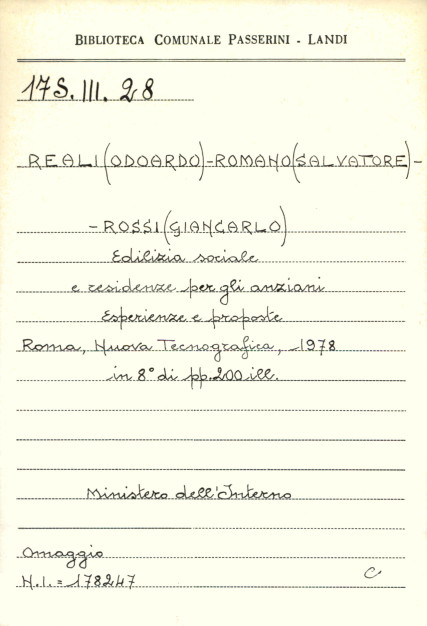 BIBLIOTECA COMUNALE PASSERINI - LANDI
17S. III. 28
REALI (ODOARDO) - ROMANO (SALVATORE) -
- ROSSI (GIANCARLO)
Edilizia sociale
e residenze per gli anziani
Esperienze e proposte
Roma, Nuova Tecnografica, 1978
in 8° di pp. 200 ill.
Ministero dell'Interno
Omaggio
N.I. = 178247
C